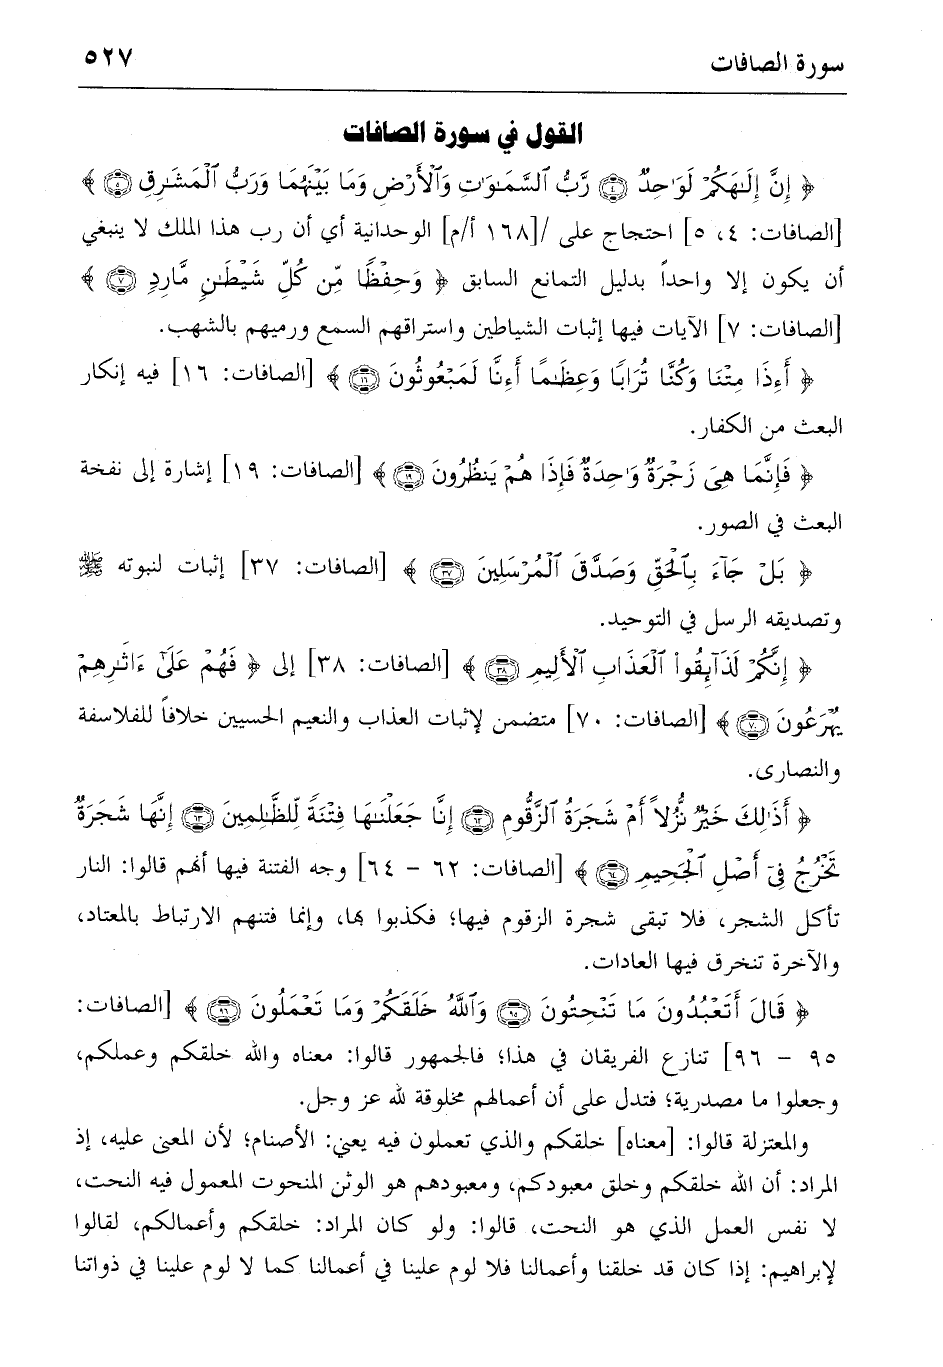 سورة الصافات
٥٢٧
القول في سورة الصافات
﴿ إِنَّ إِلَـٰهَكُمْ لَوَٰحِدٌ ۝٤ رَّبُّ ٱلسَّمَـٰوَٰتِ وَٱلْأَرْضِ وَمَا بَيْنَهُمَا وَرَبُّ ٱلْمَشَـٰرِقِ ۝٥ ﴾
[الصافات: ٤، ٥] احتجاج على /[١٦٨ أ/م] الوحدانية أي أن رب هذا الملك لا ينبغي
أن يكون إلا واحداً بدليل التمانع السابق ﴿ وَحِفْظًا مِّن كُلِّ شَيْطَـٰنٍ مَّارِدٍ ۝٧ ﴾
[الصافات: ٧] الآيات فيها إثبات الشياطين واستراقهم السمع ورميهم بالشهب.
﴿ أَءِذَا مِتْنَا وَكُنَّا تُرَابًا وَعِظَـٰمًا أَءِنَّا لَمَبْعُوثُونَ ۝١٦ ﴾ [الصافات: ١٦] فيه إنكار
البعث من الكفار.
﴿ فَإِنَّمَا هِىَ زَجْرَةٌ وَٰحِدَةٌ فَإِذَا هُمْ يَنظُرُونَ ۝١٩ ﴾ [الصافات: ١٩] إشارة إلى نفخة
البعث في الصور.
﴿ بَلْ جَآءَ بِٱلْحَقِّ وَصَدَّقَ ٱلْمُرْسَلِينَ ۝٣٧ ﴾ [الصافات: ٣٧] إثبات لنبوته ﷺ
وتصديقه الرسل في التوحيد.
﴿ إِنَّكُمْ لَذَآئِقُوا۟ ٱلْعَذَابِ ٱلْأَلِيمِ ۝٣٨ ﴾ [الصافات: ٣٨] إلى ﴿ فَهُمْ عَلَىٰٓ ءَاثَـٰرِهِمْ
يُهْرَعُونَ ۝٧٠ ﴾ [الصافات: ٧٠] متضمن لإثبات العذاب والنعيم الحسيين خلافاً للفلاسفة
والنصارى.
﴿ أَذَٰلِكَ خَيْرٌ نُّزُلاً أَمْ شَجَرَةُ ٱلزَّقُّومِ ۝٦٢ إِنَّا جَعَلْنَـٰهَا فِتْنَةً لِّلظَّـٰلِمِينَ ۝٦٣ إِنَّهَا شَجَرَةٌ
تَخْرُجُ فِىٓ أَصْلِ ٱلْجَحِيمِ ۝٦٤ ﴾ [الصافات: ٦٢ - ٦٤] وجه الفتنة فيها أنهم قالوا: النار
تأكل الشجر، فلا تبقى شجرة الزقوم فيها؛ فكذبوا بها، وإنما فتنهم الارتباط بالمعتاد،
والآخرة تنخرق فيها العادات.
﴿ قَالَ أَتَعْبُدُونَ مَا تَنْحِتُونَ ۝٩٥ وَٱللَّهُ خَلَقَكُمْ وَمَا تَعْمَلُونَ ۝٩٦ ﴾ [الصافات:
٩٥ - ٩٦] تنازع الفريقان في هذا؛ فالجمهور قالوا: معناه والله خلقكم وعملكم،
وجعلوا ما مصدرية؛ فتدل على أن أعمالهم مخلوقة لله عز وجل.
والمعتزلة قالوا: [معناه] خلقكم والذي تعملون فيه يعني: الأصنام؛ لأن المعنى عليه، إذ
المراد: أن الله خلقكم وخلق معبودكم، ومعبودهم هو الوثن المنحوت المعمول فيه النحت،
لا نفس العمل الذي هو النحت، قالوا: ولو كان المراد: خلقكم وأعمالكم، لقالوا
لإبراهيم: إذا كان قد خلقنا وأعمالنا فلا لوم علينا في أعمالنا كما لا لوم علينا في ذواتنا